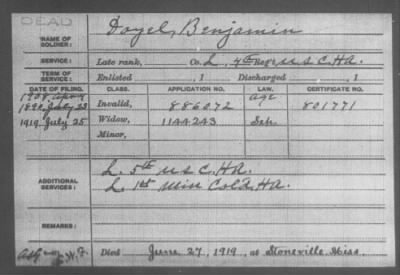 DEAD
NAME OF SOLDIER: Doyel, Benjamin
SERVICE: Late rank, Co. L, 4th Reg't U S C. H A.
TERM OF SERVICE: Enlisted , 1 Discharged , 1
DATE OF FILING. CLASS. APPLICATION NO. LAW. CERTIFICATE NO.
1908
1890 July 23 Invalid, 886072 age 801771
1919 July 25 Widow, 1144243
Minor,
ADDITIONAL SERVICES: L. 5th U S C. H A.
L. 1st Miss Cold. H A.
REMARKS:
Died June 27, 1919, at Stoneville Miss.